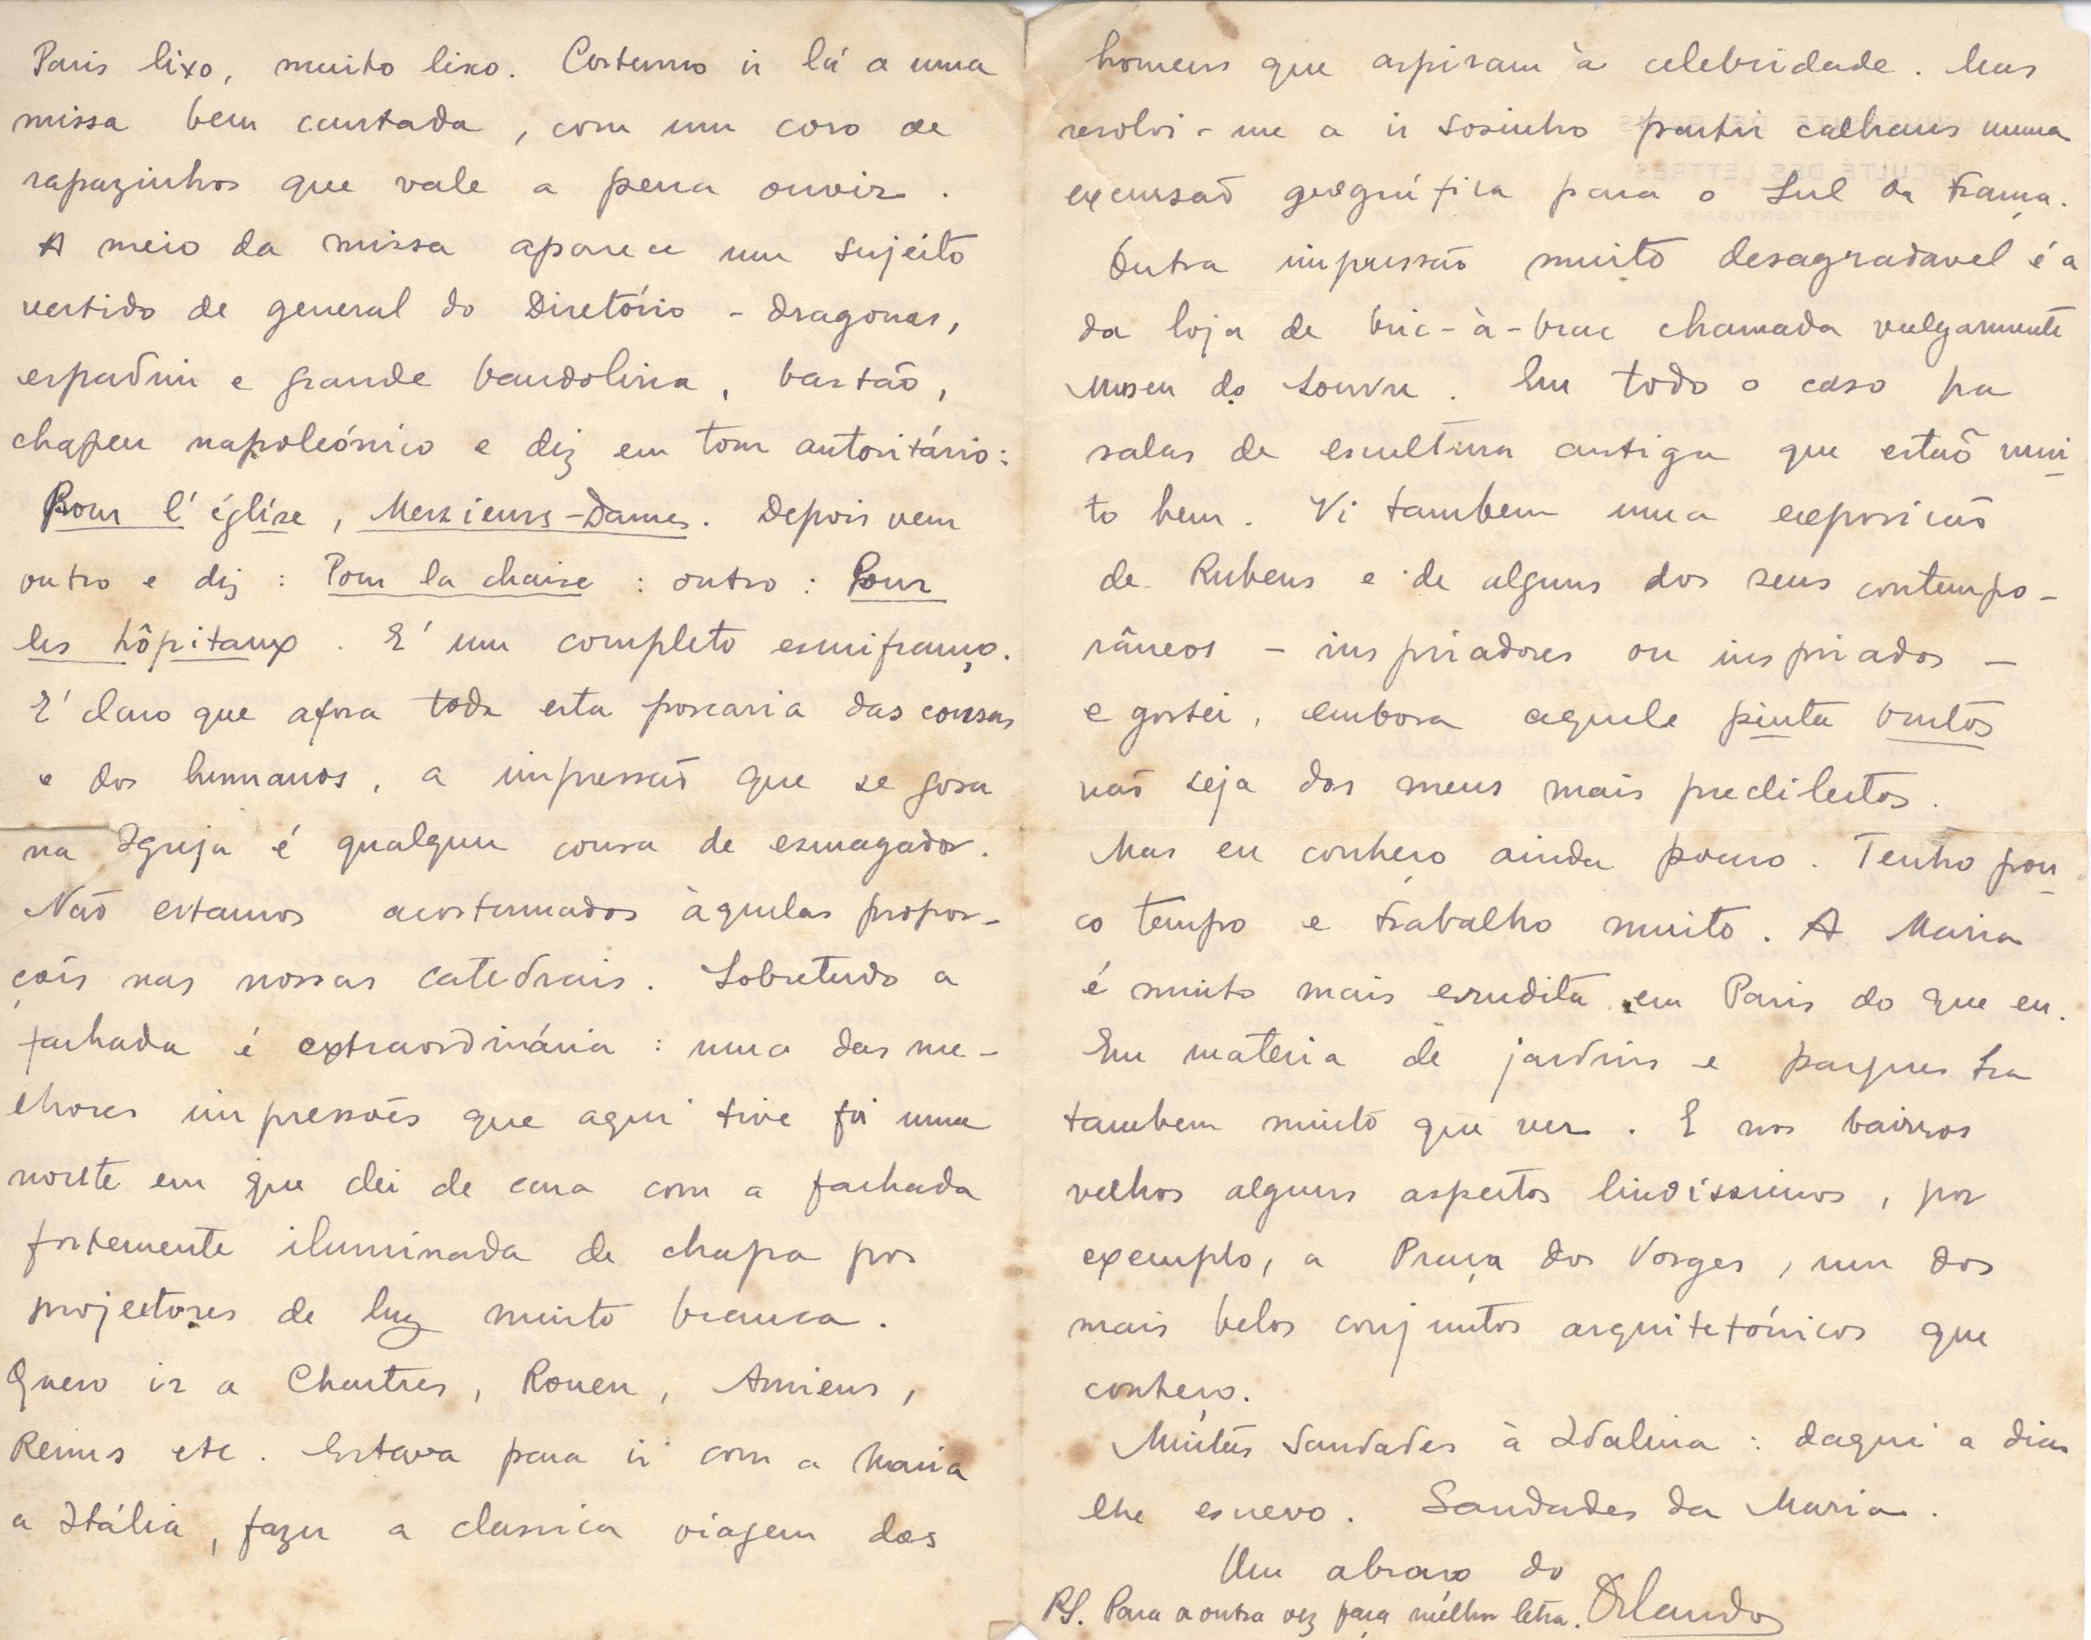 Paris lixo, muito lixo. Costumo ir lá a uma
missa bem cantada, com um coro de
rapazinhos que vale a pena ouvir.
A meio da missa aparece um sujeito
vestido de general do Diretório - dragonas,
espadim e grande bandolina, bastão,
chapeu napoleónico e diz em tom autoritário:
Pour l'église, Messieurs-Dames. Depois vem
outro e diz: Pour la chaise: outro: Pour
les hôpitaux. E' um completo esmifranço.
E' claro que afora toda esta porcaria das cousas
e dos humanos, a impressão que se gosa
na Igreja é qualquer cousa de esmagador.
Não estamos acostumados àquelas propor-
çois nas nossas catedrais. Sobretudo a
fachada é extraordinária: uma das me-
lhores impressões que aqui tive foi uma
noite em que dei de cara com a fachada
fortemente iluminada de chapa por
projectores de luz muito branca.
Quero ir a Chartres, Rouen, Amiens,
Reims etc. Estava para ir com a Maria
a Itália, fazer a classica viagem dos
homens que aspiram à celebridade. Mas
resolvi-me a ir sosinho partir calhaus numa
excursão geográfica para o Sul da França.
Outra impressão muito desagradavel é a
da loja de bric-à-brac chamada vulgarmente
Museu do Louvre. Em todo o caso ha
salas de escultura antiga que estão mui-
to bem. Vi tambem uma exposição
de Rubens e de alguns dos seus contempo-
râneos - inspiradores ou inspirados -
e gostei, embora aquele pinta
não seja dos meus mais predilectos.
Mas eu conheço ainda pouco. Tenho pou-
co tempo e trabalho muito. A Maria
é muito mais erudita em Paris do que eu.
Em materia de jardins e parques ha
tambem muito que ver. E nos bairros
velhos alguns aspectos lindíssimos, por
exemplo, a Praça dos Vosges, um dos
mais belos conjuntos arquitetónicos que
conheço.
Muitas Saudades à Idalina: daqui a dias
lhe escrevo. Saudades da Maria.
Um abraço do
P.S. Para a outra vez faça melhor letra. Orlando